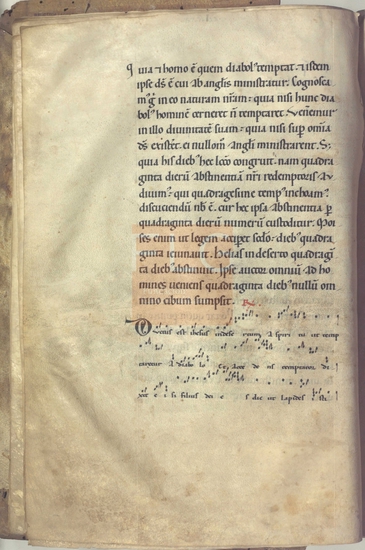 quia & homo ē quem diabol' temptat. & isdem
ipse ds̄ ē cui ab anglis ministratur. Cognosca
m' g' in eo naturam nr̄am: quia nisi hunc dia
bol' hominē cerneret n̄ temptaret. Venemur
in illo divinitatē suam: quia nisi sup om̄ia
ds̄ existeret ei nullom̄ angli ministrarent. S;
quia his dieb' hec lectō congruit. nam quadra
ginta dierū abstinentiā nr̄i redemptoris au
divim': qui quadragesime temp' inchoam':
discutiendū nob' ē. cur hec ipsa abstinentia p
quadraginta dierū numerū custoditur. Moy
ses enim ut legem acciperet scdo: dieb' quadra
ginta ieiunavit. Helias in deserto quadragī
ta dieb' abstinuit. Ipse auctor omniū ad ho
mines veniens quadraginta dieb' nullū om
nino cibum sumpsit. R.
Ductus est ihesus in dese rtum a spiri tu ut temp
taretur a diabo lo Et acce de ns temptator di
xit e i si filius dei e s dic ut lapides isti